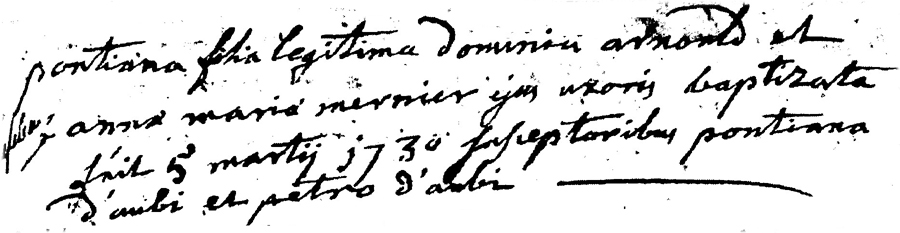 pontiana filia legitima dominici arnould et
annæ mariæ mernier ejus uxoris baptizata
fuit 5 martij j730 susceptoribus pontiana
d'aubi et petro d'aubi